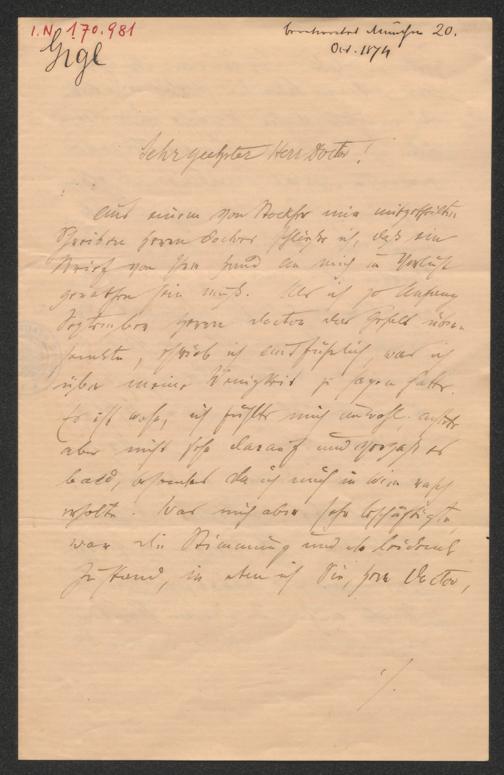 I.N. 170.981
Gigl
beantwortet München 20.
Oct. 1874
Sehr geehrter Herr Doctor!
Aus einem von mir
Schreiben Herrn Doctors schließe ich, daß ein
Brief von Ihrer Hand an mich in Verlust
gerathen sein muß. Als ich zu Anfang
September Herrn Doctor das über-
sendete, schrieb ich ausführlich, was ich
über meine Wenigkeit zu sagen hatte.
Es ist wahr, ich fühlte mich unwohl, achtete
aber nicht sehr darauf und vergaß es
bald, besonders da ich mich in Wien rasch
erholte. Was mich aber sehr beschäftigte,
war die Stimmung und der leidende
Zustand, in dem ich Sie, Herr Doctor,
./.